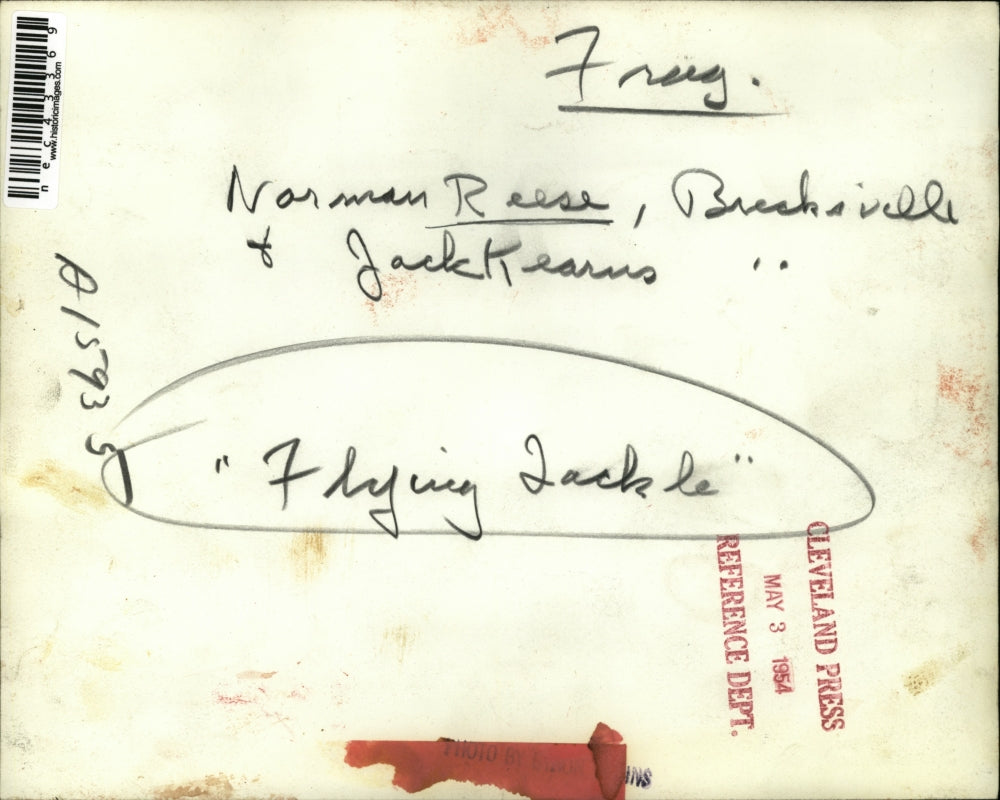 nec43369
www.historicimages.com
Frag.
Norman Reese, Brecksville
& Jack Kearns "
A15935
"Flying Tackle"
CLEVELAND PRESS
MAY 3 1954
REFERENCE DEPT.
PHOTO BY